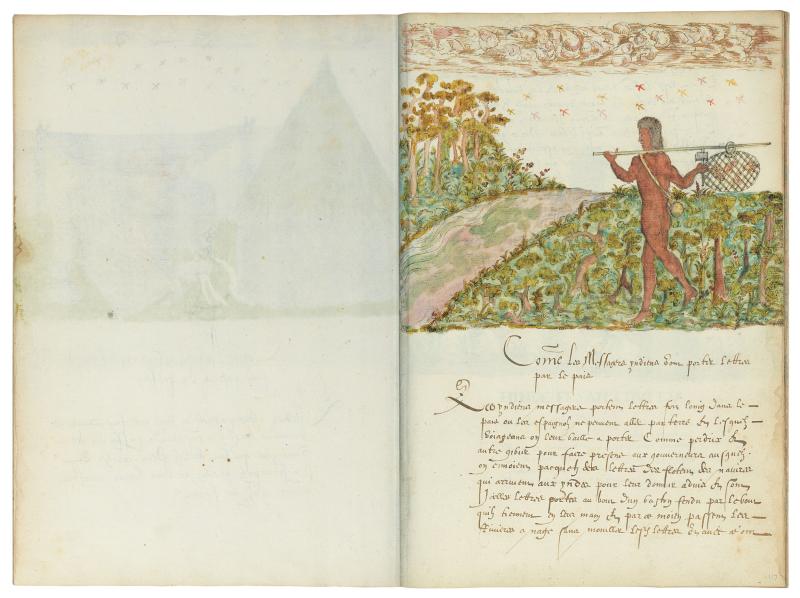 Come les Messagers yndiens vont porter lettres
par le pais
Les yndiens messagers portent lettres fort loing dans le
pais ou les espagnolz ne peuvent aller par terre
voiageans on leur baille a porter Comme perdrix &
autre gibier pour faire present aux gouverneurs ausquelz
on envoient pacquetz des lettres des flotes des navires
qui arrivent aux yndes pour leur donner advis
lettres portes au bout d'un baston fendu par le bout
quilz tiennent en leur main & par ce moien passent les
Rivieres a nage sans mouiller lesd lettres